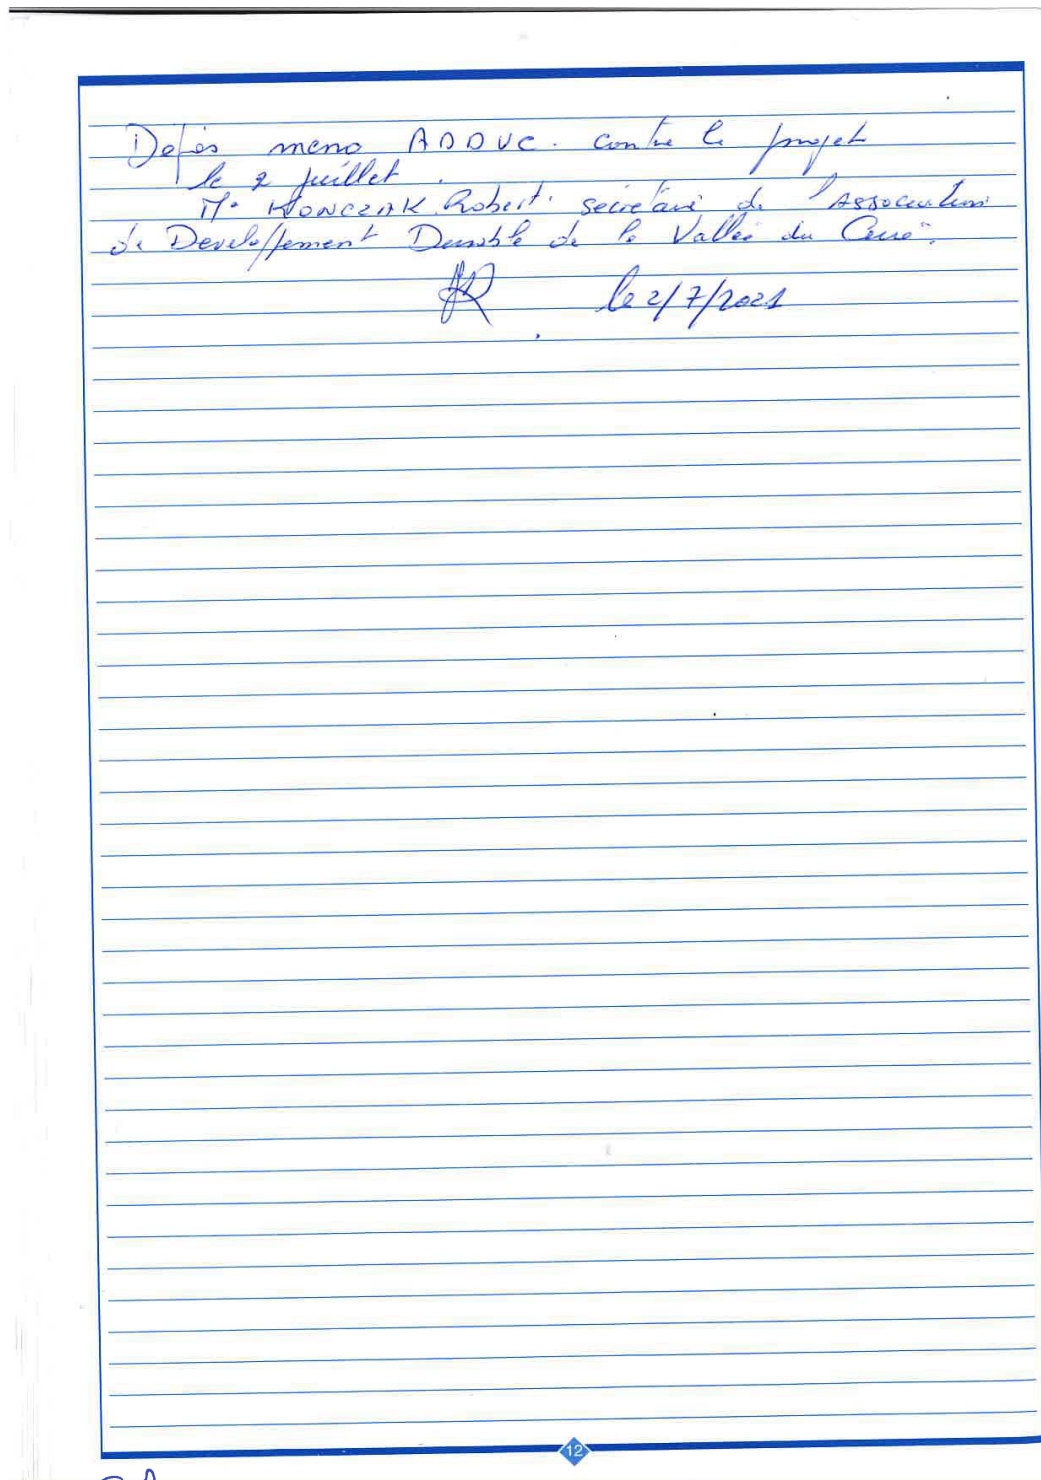 Depos memo ADDVC. contre le projet
le 2 juillet.
Mr KLONCZAK Robert. secrétaire de l'Association
de Developpement Durable de la Vallée du
le 2/7/2021
12